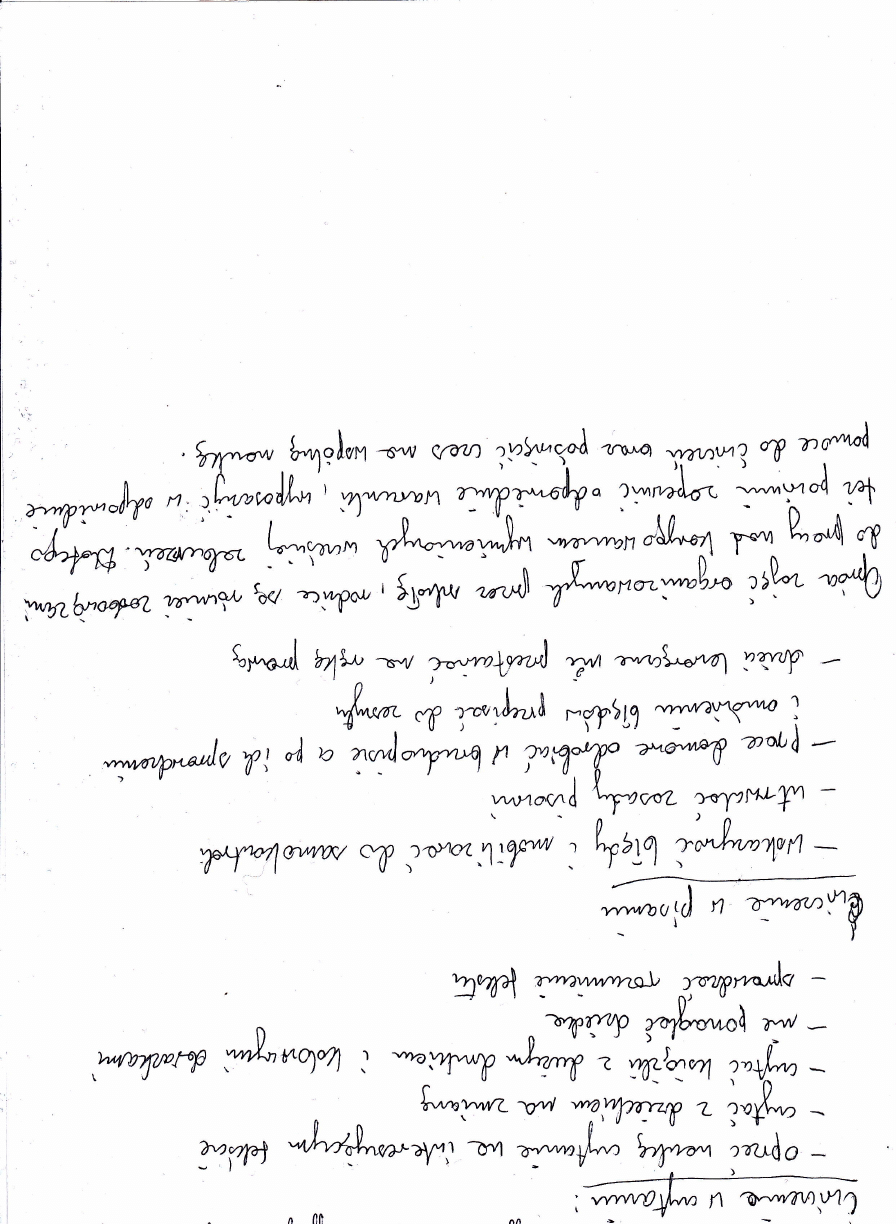 Ćwiczenie w czytaniu:
- oprzeć naukę czytania na interesującym tekście
- czytać z dzieckiem na zmianę
- czytać książki z dużym drukiem i kolorowymi obrazkami
- nie ponaglać dziecka
- sprawdzać rozumienie tekstu
Ćwiczenie w pisaniu
- Wskazywać błędy i mobilizować do samokontroli
- utrwalać zasady pisowni
- prace domowe odrabiać w brudnopisie a po ich sprawdzeniu
i omówieniu błędów przepisać do zeszytu
- dzieci leworęczne nie przestawiać na rękę prawą
Oprócz zajęć organizowanych przez szkołę, rodzice są również zobowiązani
do pracy nad korygowaniem wymienionych wcześniej zaburzeń. Dlatego
też powinni zapewnić odpowiednie warunki, wyposażyć w odpowiednie
pomoce do ćwiczeń oraz poświęcić czas na wspólną naukę.